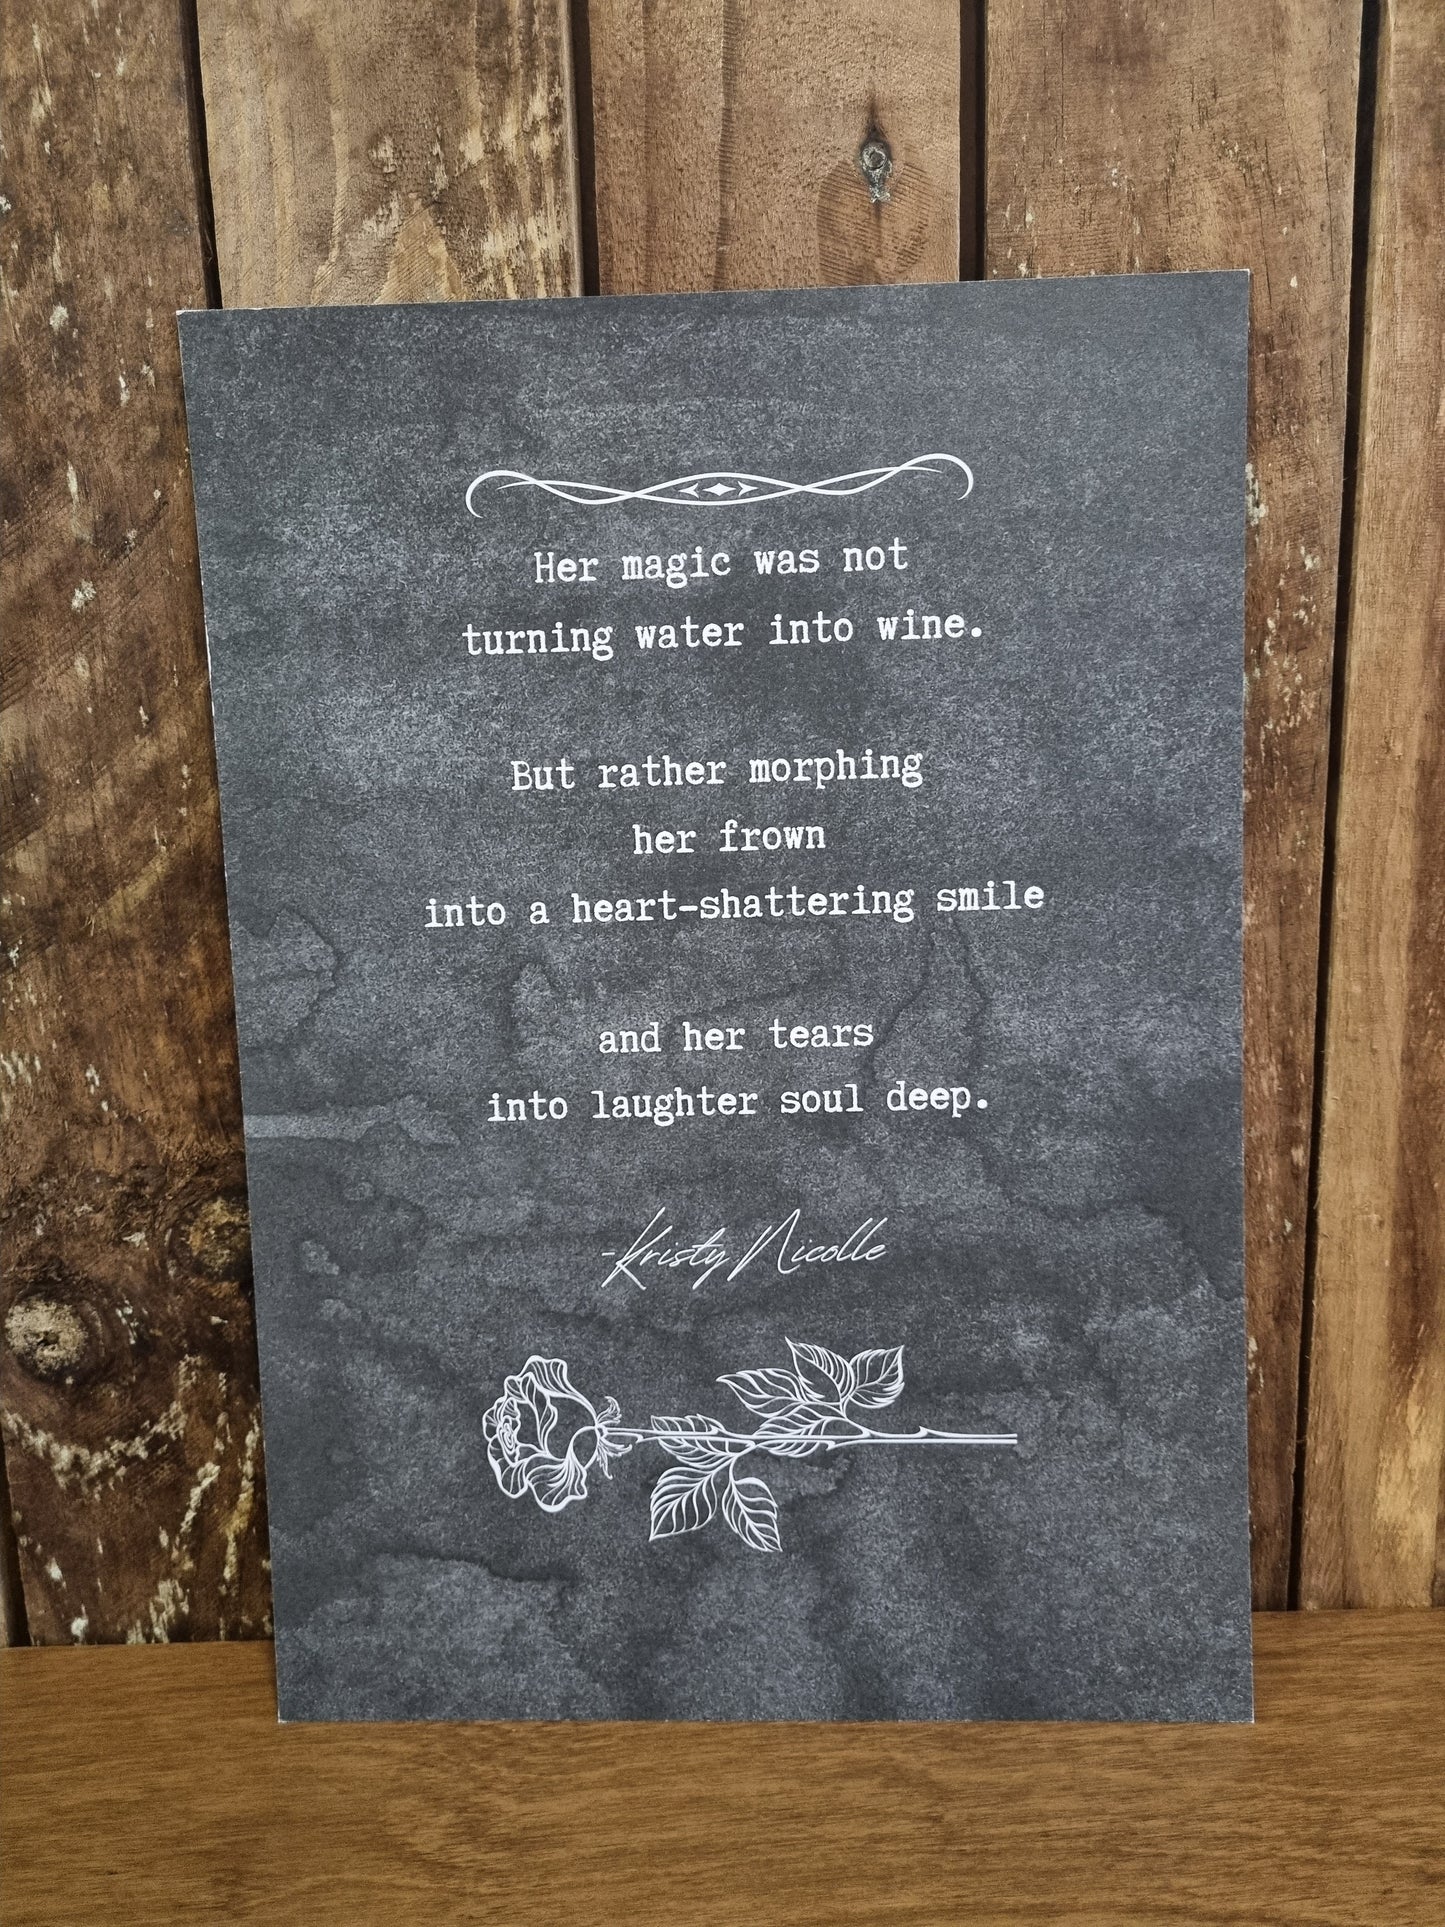 Her magic was not
turning water into wine.
But rather morphing
her frown
into a heart-shattering smile
and her tears
into laughter soul deep.
-Kristy Nicolle